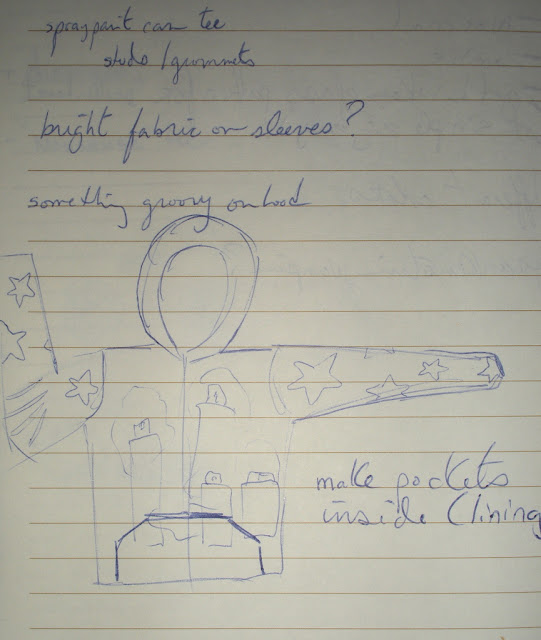 spray paint can tee
studs / grommets
bright fabric on sleeves?
something groovy on hood
make pockets
inside (lining